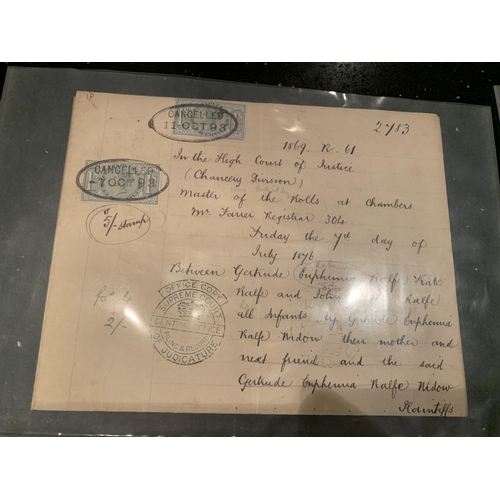 CANCELLED
11 OCT 93
2783
1869. R. 61
In the High Court of Justice
CANCELLED
-7 OCT 93
(Chancery Division)
Master of the Rolls at Chambers
5/- stamp
Mr Farrer Registrar 304
Friday the 7th day of
July 1876
Between Gertrude Euphemia Ralfe Kate
Ralfe and John Ralfe
OFFICE COPY
SUPREME COURT
CENTRAL OFFICE
OF JUDICATURE
all Infants by Gertrude Euphemia
fos 4
2/-
Ralfe Widow their mother and
next friend and the said
Gertrude Euphemia Ralfe Widow
Plaintiffs